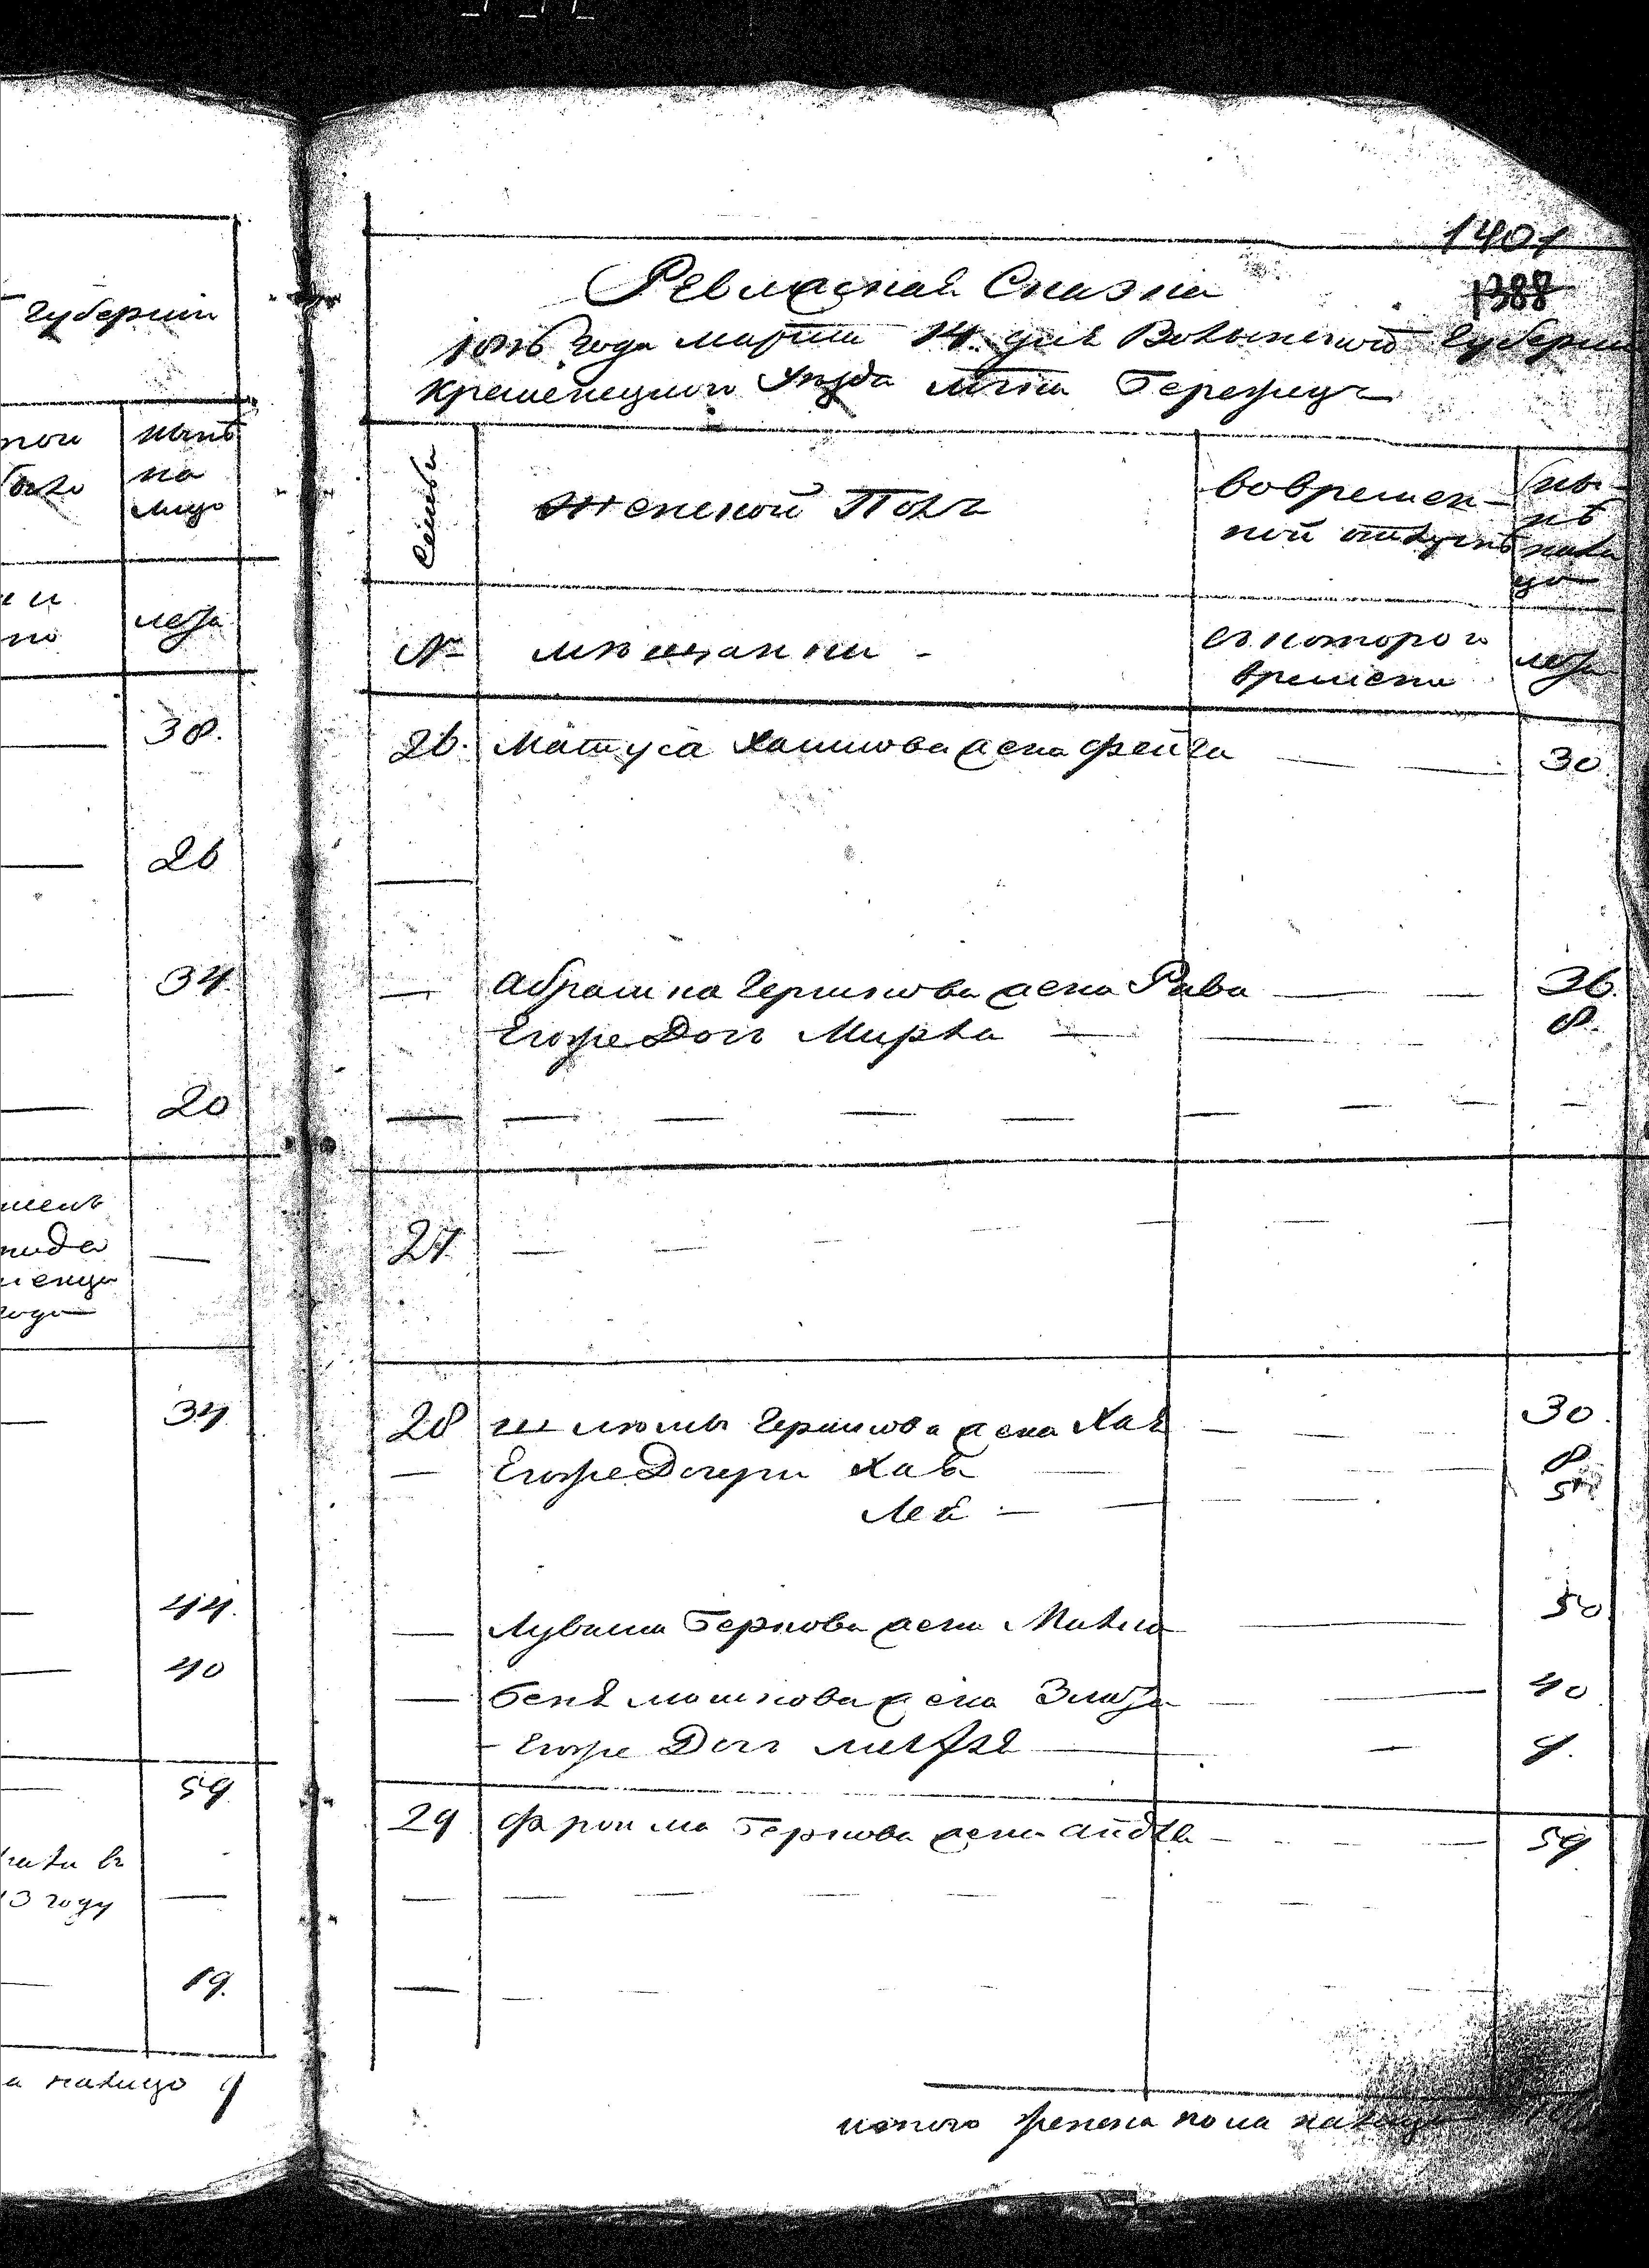 Губерніи
ныне
на
лицо
лета
38.
26
34.
20
34
44.
40
59
3 году
19.
а налицо 9
1401
1388
Ревизская Сказка
1816 Года марта 14 дня Волынской Губерніи
Кременецкого уезда Бережецъ
Семьи
Женской Полъ
вовремен-
ной отлучке
ны-
не
нали
цо
№
мещанки
съ которого
времени
лета
26. Матуса Хаимова жена Фейга 30
Абрамка Гершкова жена Рива 36.
Егоже Дочь Мирля 8.
27
28 Шлюмы Гершкова жена Хая 30.
Егоже Дочери Хава 8
Лея 5
Лувиша Беркова жена Малка 50
беня мошкова жена Злата 40
Егоже Дочь 9.
29 Фроима Беркова жена Айдля 59
итого женска пола налицо